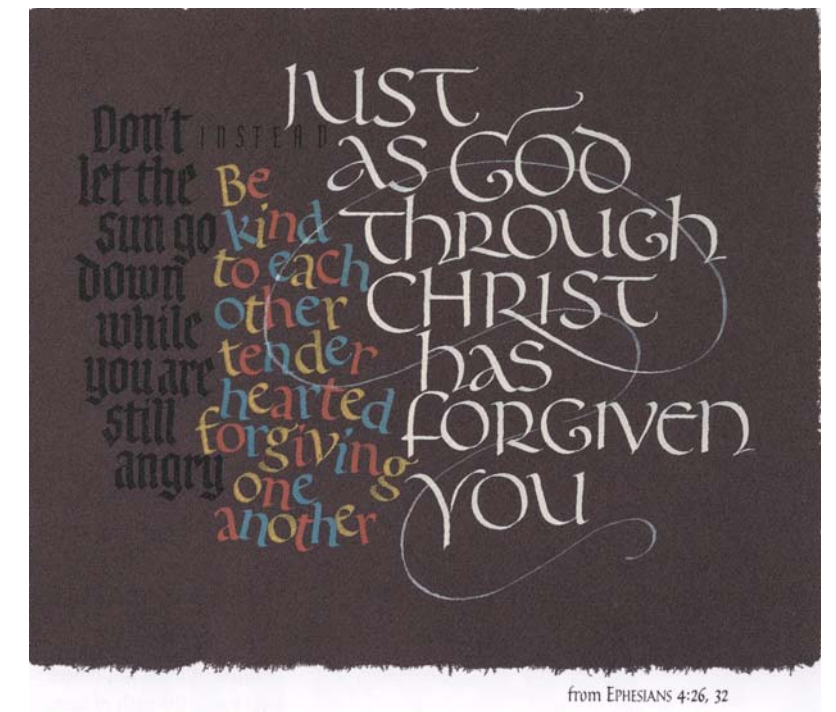 Don't
let the
sun go
down
while
you are
still
angry
INSTEAD
Be
kind
to each
other
tender
hearted
forgiving
one
another
JUST
AS GOD
ThROUGh
CHRIST
hAS
FORGIVEN
YOU
from EPHESIANS 4:26, 32